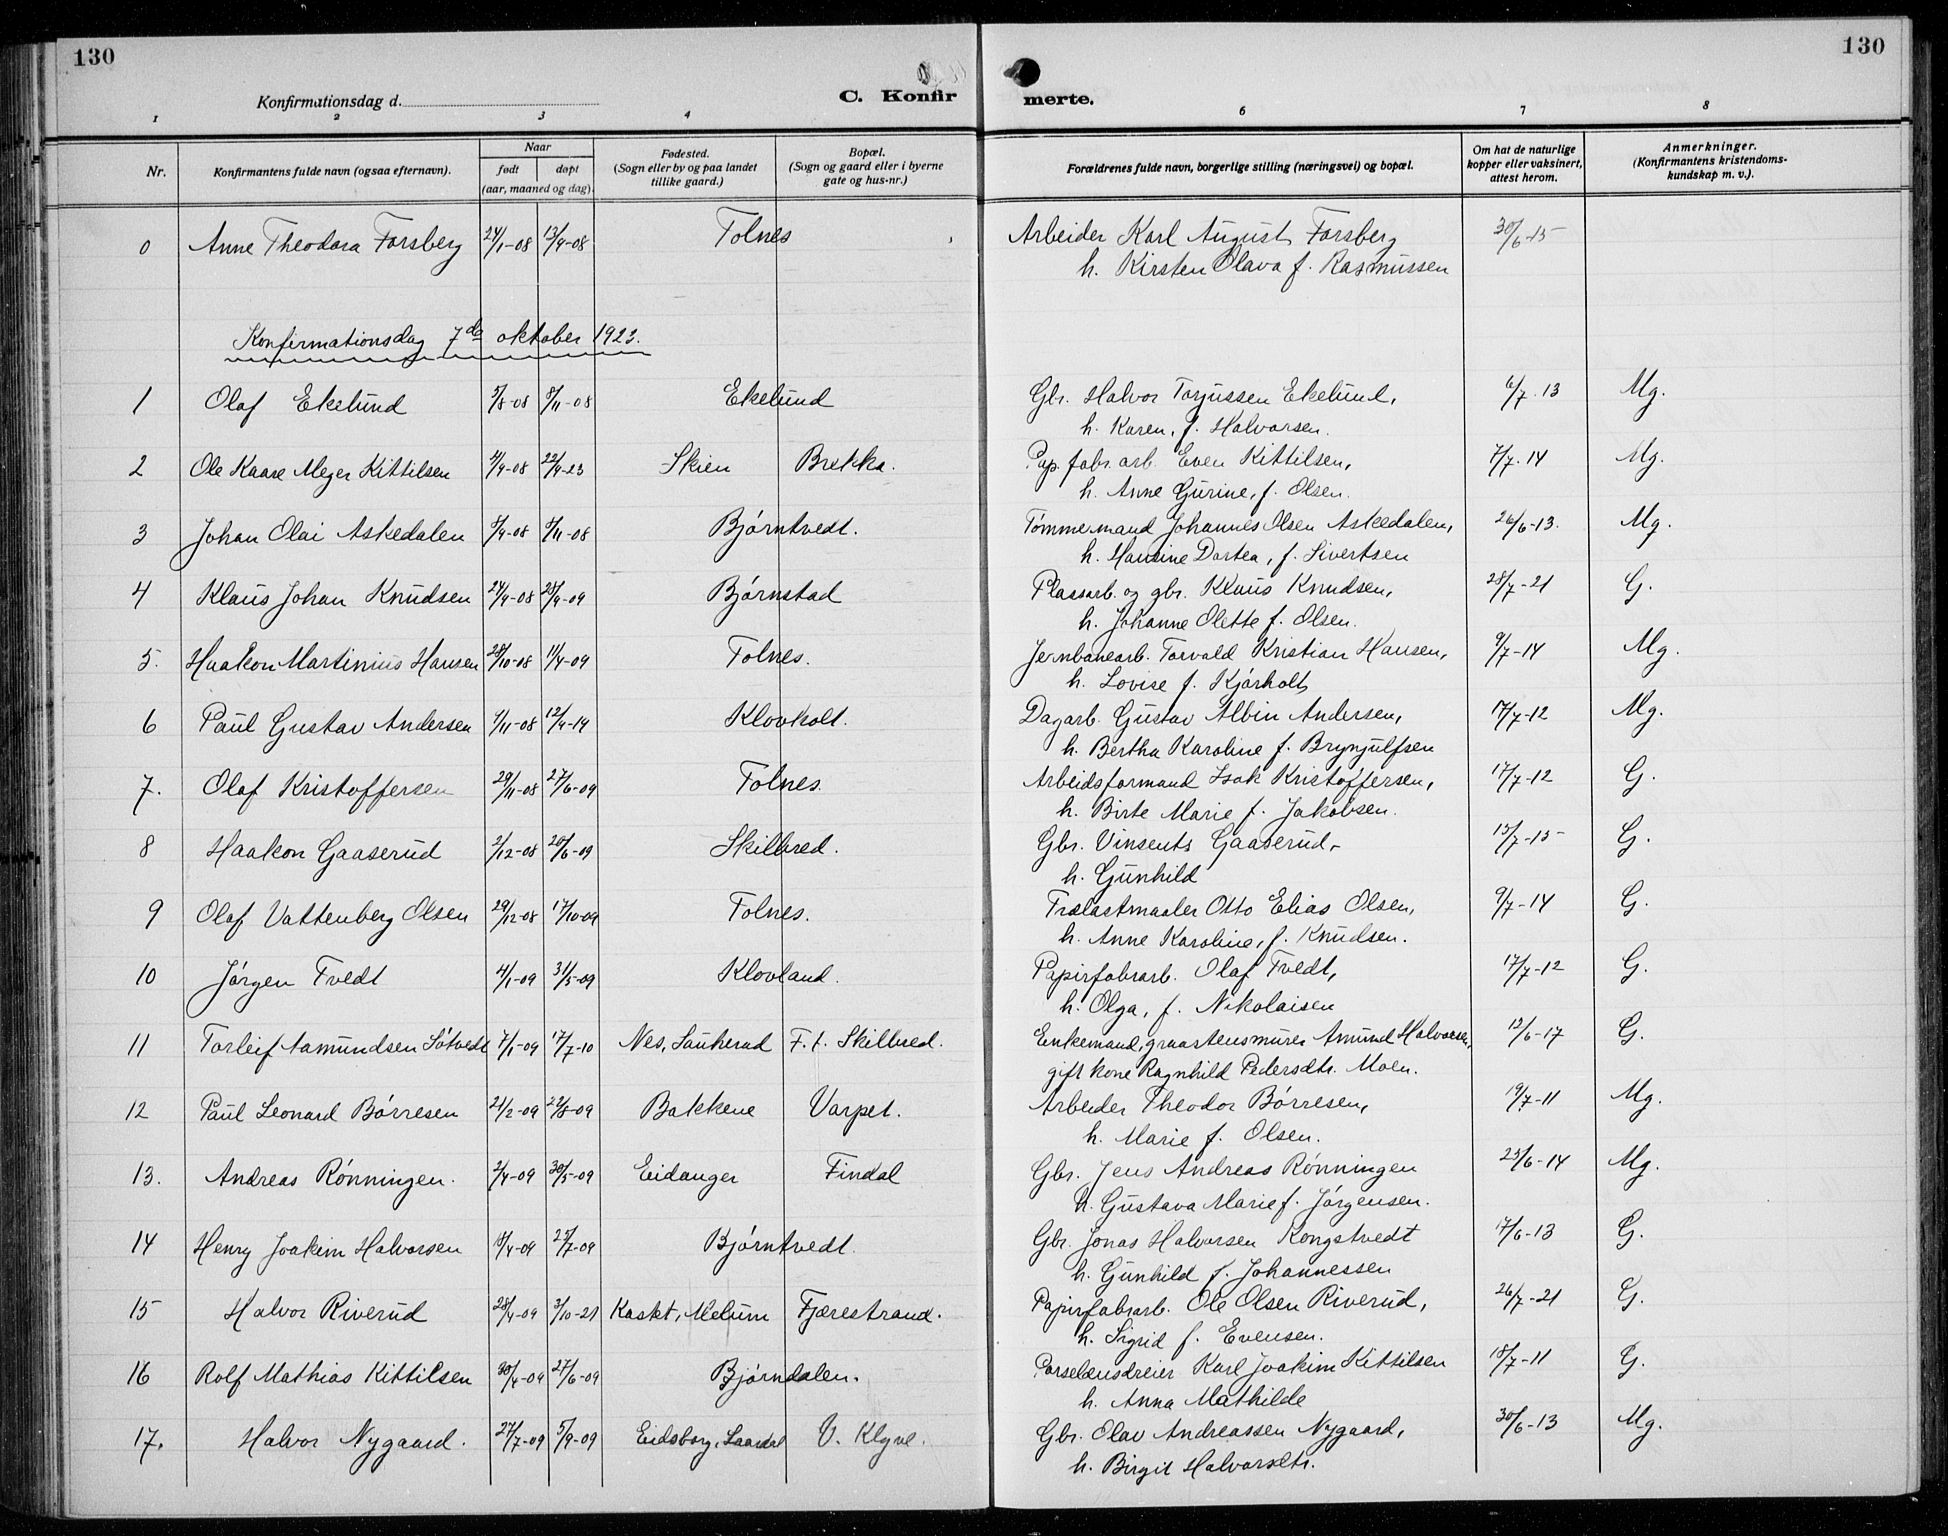 130
130
Konfirmationsdag d.
C. Konfir
merte.
1 2 3 4 6 7 8
Nr.
Konfirmantens fulde navn (ogsaa efternavn).
Naar
født
døpt
(aar, maaned og dag).
Fødested.
(Sogn eller by og paa landet
tillike gaard.)
Bopæl.
(Sogn og gaard eller i byerne
gate og hus-nr.)
Forældrenes fulde navn, borgerlige stilling (næringsvei) og bopæl.
Om hat de naturlige
kopper eller vaksinert,
attest herom.
Anmerkninger.
(Konfirmantens kristendoms-
kundskap m. v.).
0 Anne Theodora Forsberg 24/1-08 13/9-08 Tolnes Arbeider Karl August Forsberg 30/6-15
h. Kirsten Olava f. Rasmussen
Konfirmationsdag 7de oktober 1923.
1 Olaf Ekelund 5/8-08 8/11-08 Ekelund Gbr. Halvor Torjussen Ekelund, 6/7.13 Mg.
h. Karen, f. Halvorsen.
2 Ole Kaare Meyer Kittilsen 4/9-08 22/9-23 Skien Brekka. Pap.fabr.arb. Even Kittilsen, 7/7.14 Mg.
h. Anne Gurine, f. Olsen.
3 Johan Olai Askedalen 8/9-08 8/11-08 Bjørntvedt. Tømmermand Johannes Olsen Askedalen, 26/6-13. Mg.
h. Hansine Dortea, f. Sivertsen
4 Klaus Johan Knudsen 24/9-08 25/9-09 Bjørnstad Plassarb. og gbr. Klaus Knudsen, 28/7-21 G.
h. Johanne Olette f. Olsen.
5. Haakon Martinius Hansen 28/10-08 11/4-09 Tolnes. Jernbanearb. Torvald Kristian Hansen, 9/7-14 Mg.
h. Lovise f. Kjørholt
6 Paul Gustav Andersen 9/11-08 12/4-14 Klovholt. Dagarb. Gustav Albin Andersen, 17/7-12 Mg.
h. Bertha Karoline f. Brynjulfsen
7. Olaf Kristoffersen 29/11-08 27/6-09 Tolnes. Arbeidsformand Isak Kristoffersen, 17/7-12 G.
h. Birte Marie f. Jakobsen.
8 Haakon Gaaserud 2/12-08 20/6-09 Skilbred. Gbr. Vinsents Gaaserud, 15/7-15 G.
h. Gunhild
9 Olaf Vattenberg Olsen 29/12-08 17/10-09 Tolnes. Trælastmaaler Otto Elias Olsen, 9/7-14 G.
h. Anne Karoline, f. Knudsen.
10 Jørgen Tvedt 4/1-09 31/5-09 Klovland. Papirfabrarb. Olaf Tvedt, 17/7-12 G.
h. Olga, f. Nikolaisen
11 Torleif Aamundsen Søtvedt 7/1-09 17/7-10 Nes, Sauherad F.t. Skilbred. Enkemand, graastensmurer Amund Halvorsen, 12/6-17 G.
gift kone Ragnhild Pedersdtr. Moen.
12 Paul Leonard Børresen 21/2-09 22/8-09 Bakkene Varpet. Arbeider Theodor Børresen, 19/7-11 Mg.
h. Marie f. Olsen.
13. Andreas Rønningen. 2/4-09 30/5-09 Eidanger Findal Gbr. Jens Andreas Rønningen 25/6-14 Mg.
h. Gustava Marie f. Jørgensen.
14 Henry Joakim Halvorsen 18/4-09 25/7-09 Bjørntvedt. Gbr. Jonas Halvorsen Kongstvedt 17/6-13 G.
h. Gunhild f. Johannessen
15 Halvor Riverud 28/4-09 3/10-21 Kaskt, Melum Fjærestrand. Papirfabrarb. Ole Olsen Riverud, 26/7-21 G.
h. Sigrid f. Evensen.
16 Rolf Mathias Kittilsen 30/4-09 27/6-09 Bjørndalen. Porselensdreier Karl Joakim Kittilsen 18/7-11 G.
h. Anna Mathilde
17. Halvor Nygaard. 27/7-09 5/9-09 Eidsborg, Laardal V. Klyve. Gbr. Olav Andreassen Nygaard, 30/6-13 Mg.
h. Birgit Halvorsdtr.